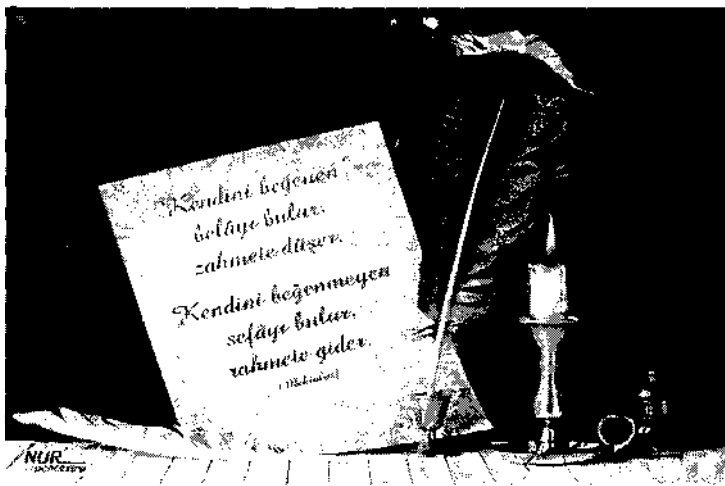 Kendini beğenen
belâyı bulur,
zahmete düşer.
Kendini beğenmeyen
sefâyı bulur,
rahmete gider.
(Mektubat)
NUR
penceresi